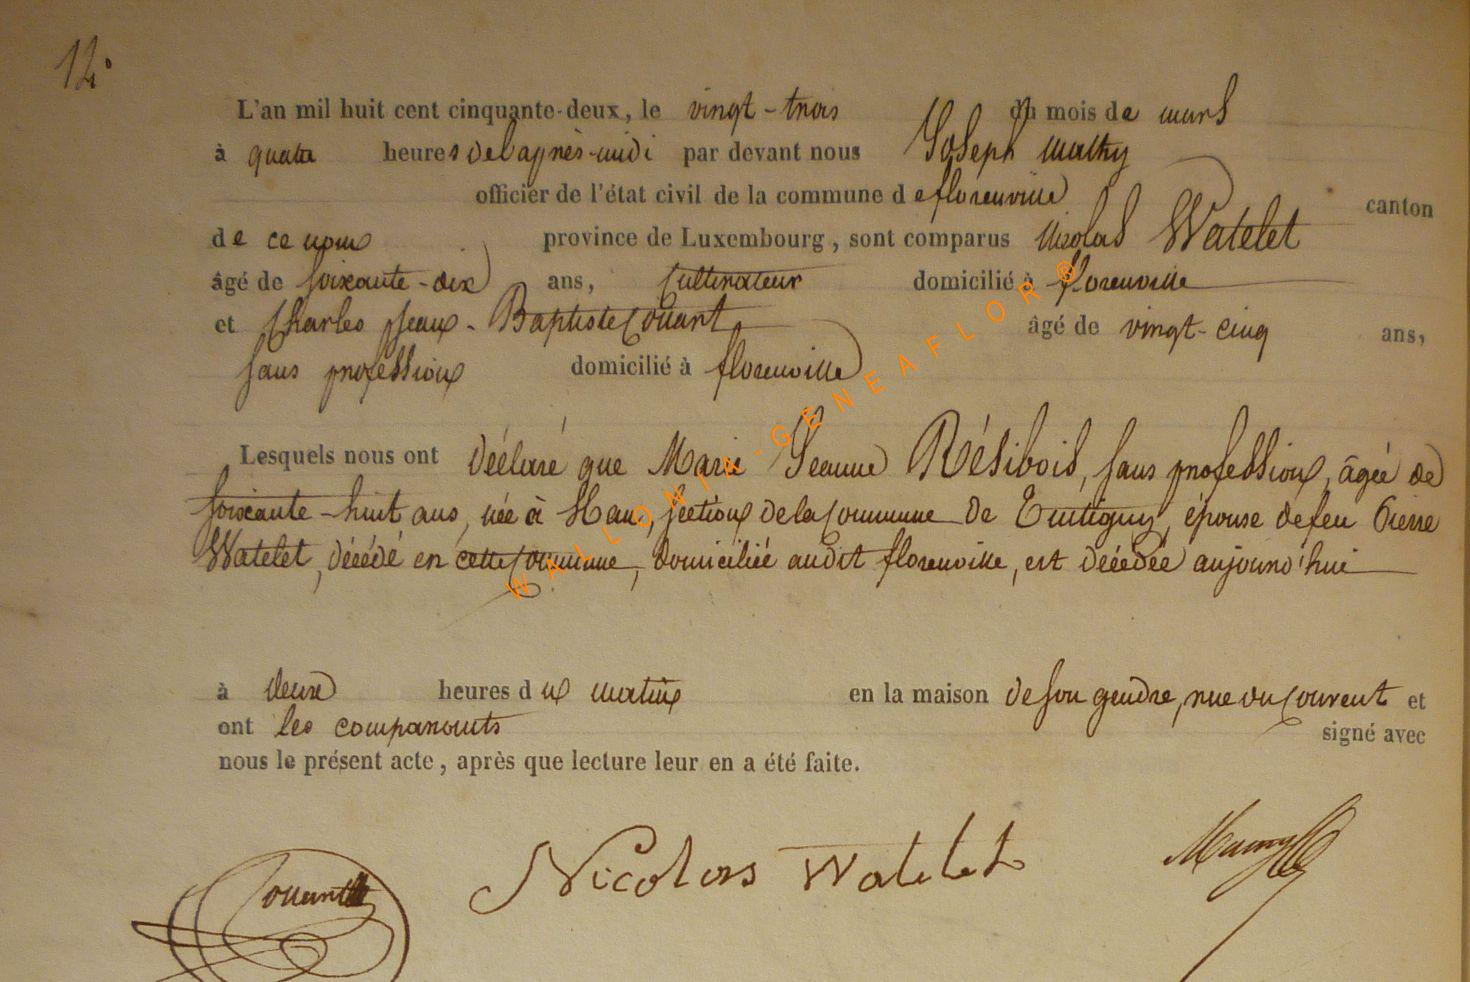 12°
L'an mil huit cent cinquante-deux, le vingt-trois du mois de mars
à quatre heures de l'après-midi par devant nous Joseph Mathy
officier de l'état civil de la commune de florenville canton
de ce nom province de Luxembourg, sont comparus Nicolas Watelet
âgé de soixante-dix ans, Cultivateur domicilié à florenville
et Charles Jean-Baptiste Couart âgé de vingt-cinq ans,
sans profession domicilié à florenville
Lesquels nous ont déclaré que Marie Jeanne Résibois, sans profession, âgée de
soixante-huit ans, née à Han, section de la Commune de Tintigny, épouse de feu Pierre
Watelet, décédé en cette commune, domiciliée audit florenville, est décédée aujourd'hui
à deux heures du matin en la maison de son gendre, rue du Couvent et
ont les comparants signé avec
nous le présent acte, après que lecture leur en a été faite.
Couart Nicolas Watelet
WALLONIA-GENEAFLOR®